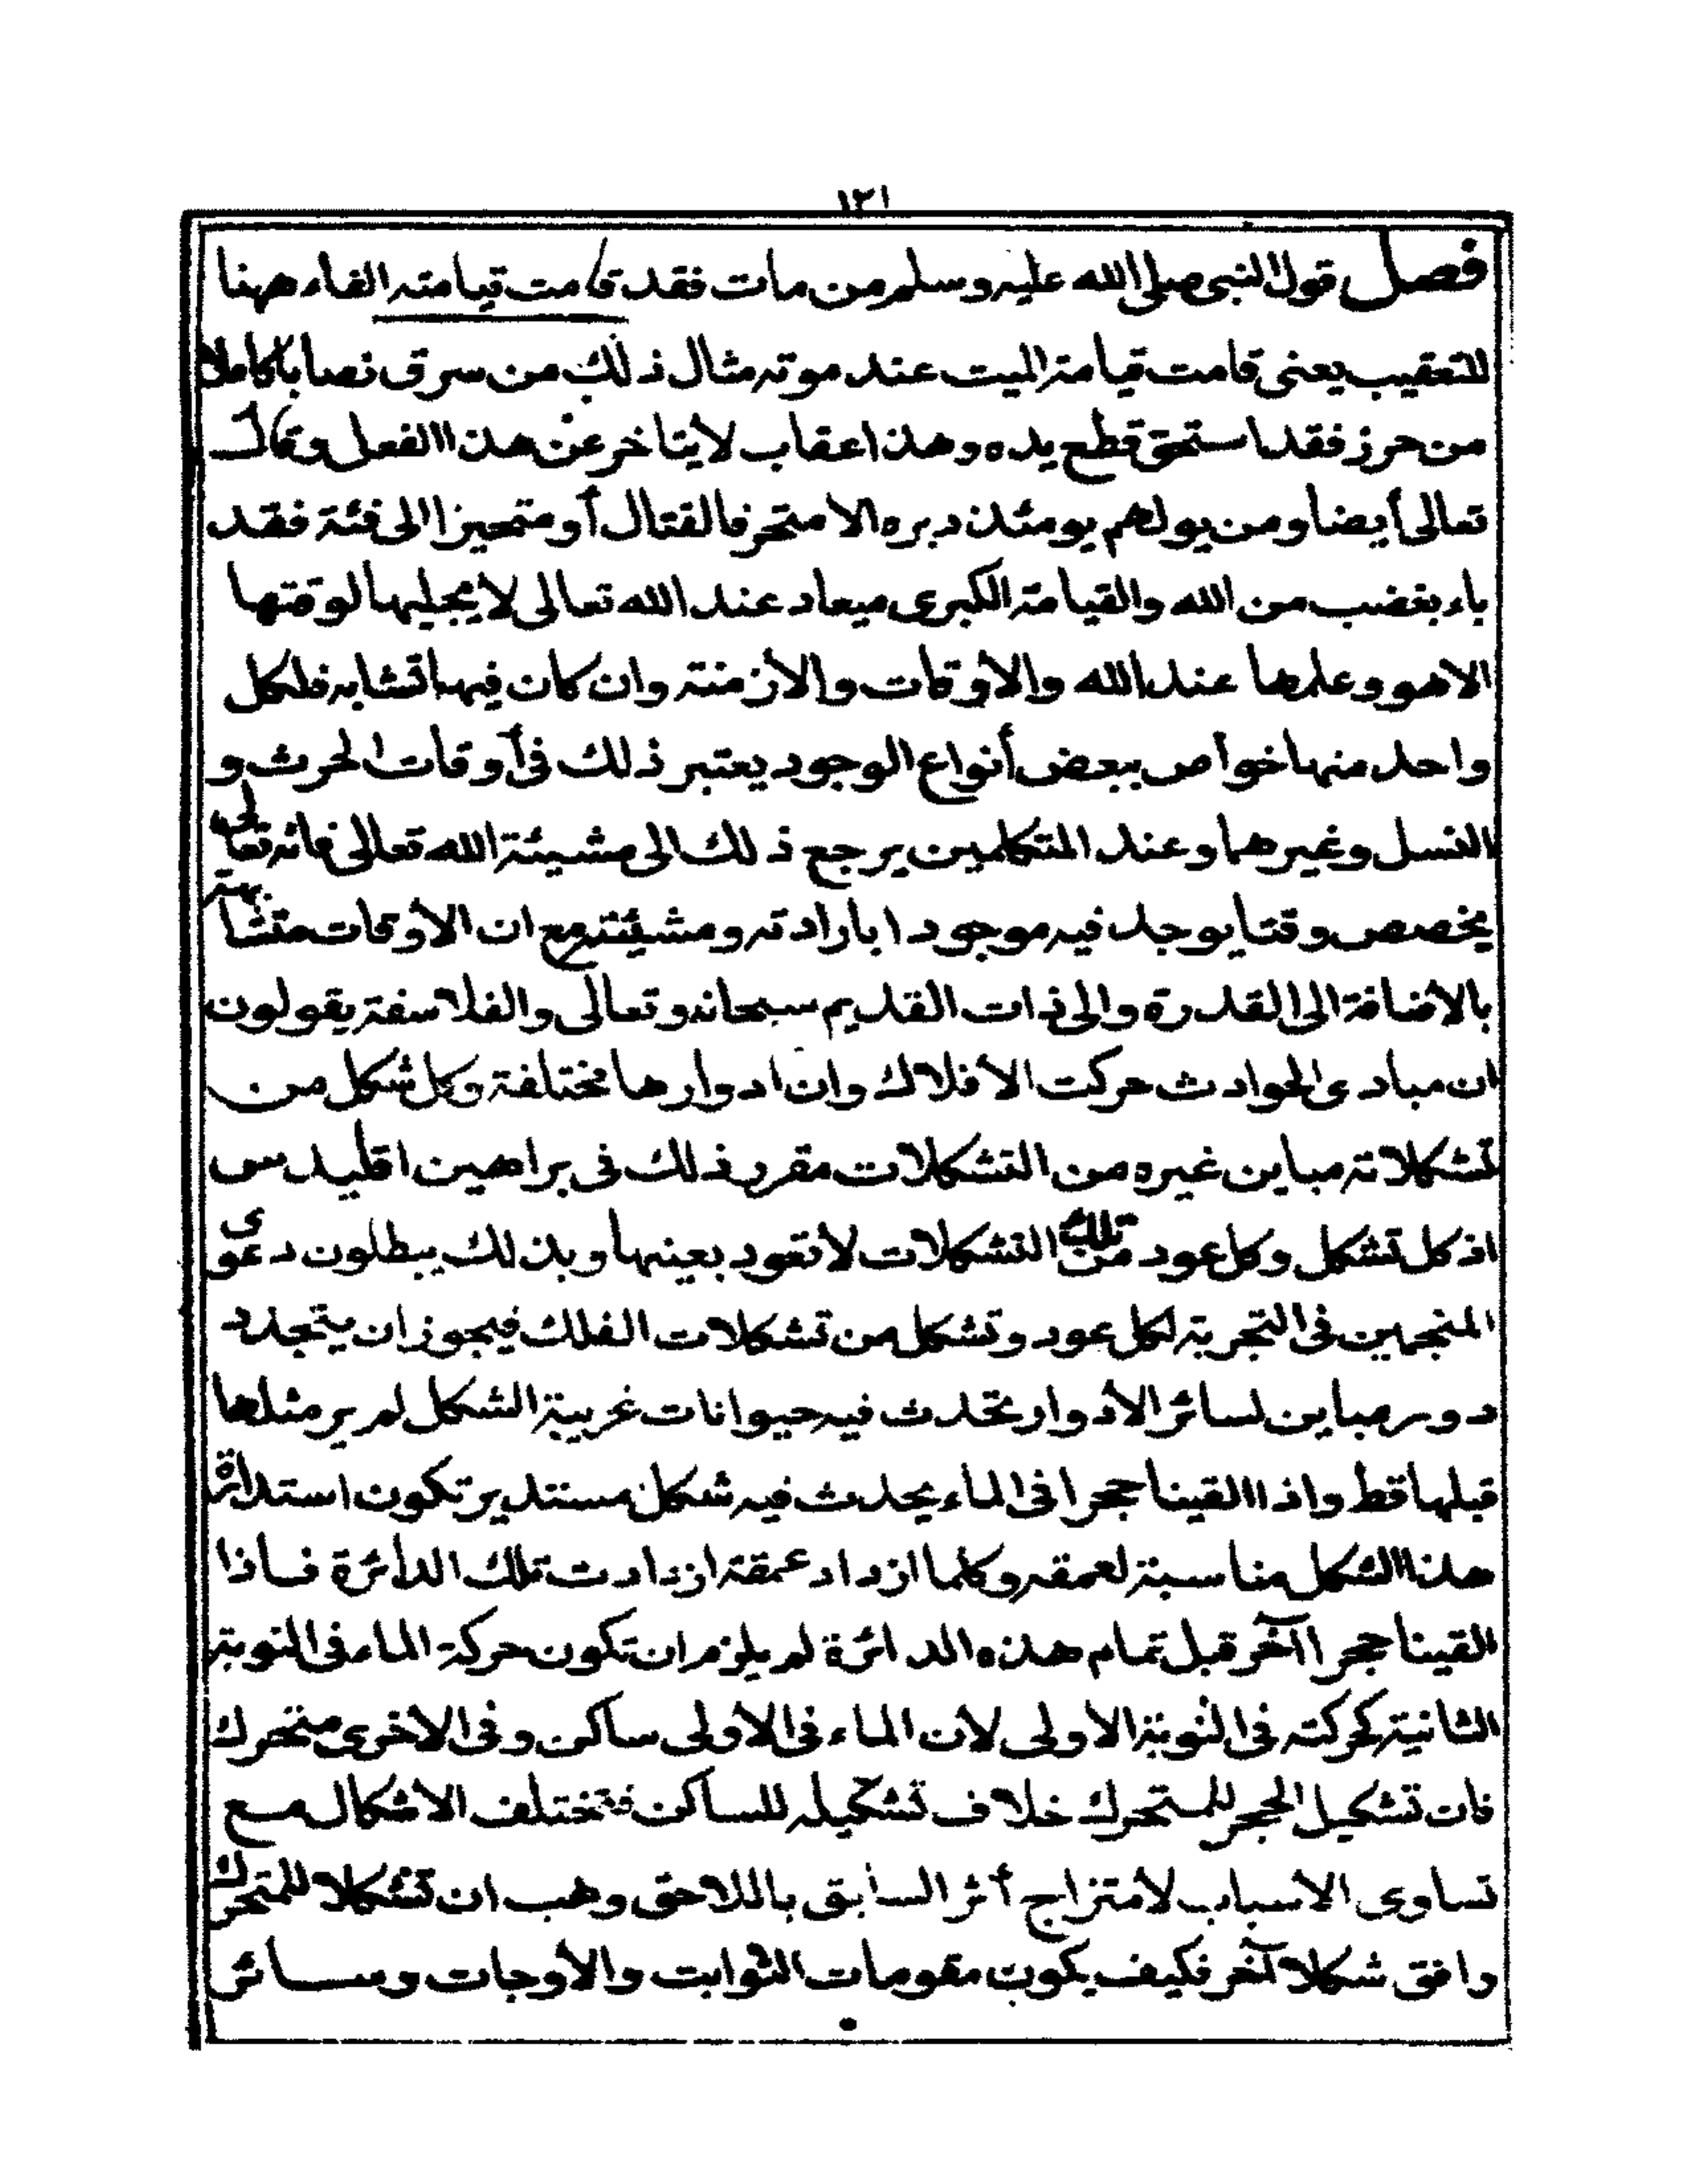 ١٢١
فصل قول النبى صلى الله عليه وسلم من مات فقد قامت قيامته الفاء ههنا
للتعقيب يعنى قامت قيامة الميت عند موته مثال ذلك من سرق نصابا كاملا
من حرز فقد استحق قطع يده وهذا عقاب لا يتاخر عن هذا الفعل وقال
تعالى أيضا ومن يولهم يومئذ دبره الا متحرفا لقتال أو متحيزا الى فئة فقد
باء بغضب من الله والقيامة الكبرى ميعاد عند الله تعالى لا يجليها لوقتها
الا هو وعلمها عند الله والأوقات والأزمنة وان كان فيها تشابه فلكل
واحد منها خواص ببعض أنواع الوجود يعتبر ذلك فى أوقات الحرث و
النسل وغيرهما وعند المتكلمين يرجع ذلك الى مشيئة الله تعالى فانه تعالى
يخصص وقتا يوجد فيه موجودا بارادته ومشيئته مع ان الأوقات متشابهة
بالأضافة الى القدرة والى ذات القديم سبحانه وتعالى والفلاسفة يقولون
ان مبادى الحوادث حركت الأفلاك وان ادوارها مختلفة وكل شكل من
تشكلاته مباين غيره من التشكلات مقرر ذلك فى براهين اقليدس
اذ كل تشكل وكل عود من تلك التشكلات لا تعود بعينها وبذلك يبطلون دعوى
المنجمين فى التجربة لكل عود وتشكل من تشكلات الفلك فيجوز ان يتجدد
دور مباين لسائر الأدوار تحدث فيه حيوانات غريبة الشكل لم ير مثلها
قبلها قط واذا القينا حجرا فى الماء يحدث فيه شكل مستدير تكون استدارة
هذا الشكل مناسبة لعمقه وكلما ازداد عمقة ازدادت تلك الدائرة فاذا
القينا حجرا آخر قبل تمام هذه الدائرة لم يلزم ان تكون حركة الماء فى النوبة
الثانية كحركته فى النوبة الأولى لأن الماء فى الأولى ساكن وفى الأخرى متحرك
فان تشكيل الحجر للمتحرك خلاف تشكيله للساكن فتختلف الأشكال مع
تساوى الأسباب لأمتزاج أثر السابق باللاحق وهب ان تشكلا للمتحرك
وافق شكلا آخر فكيف يكون مقومات الثوابت والأوجات وسائر